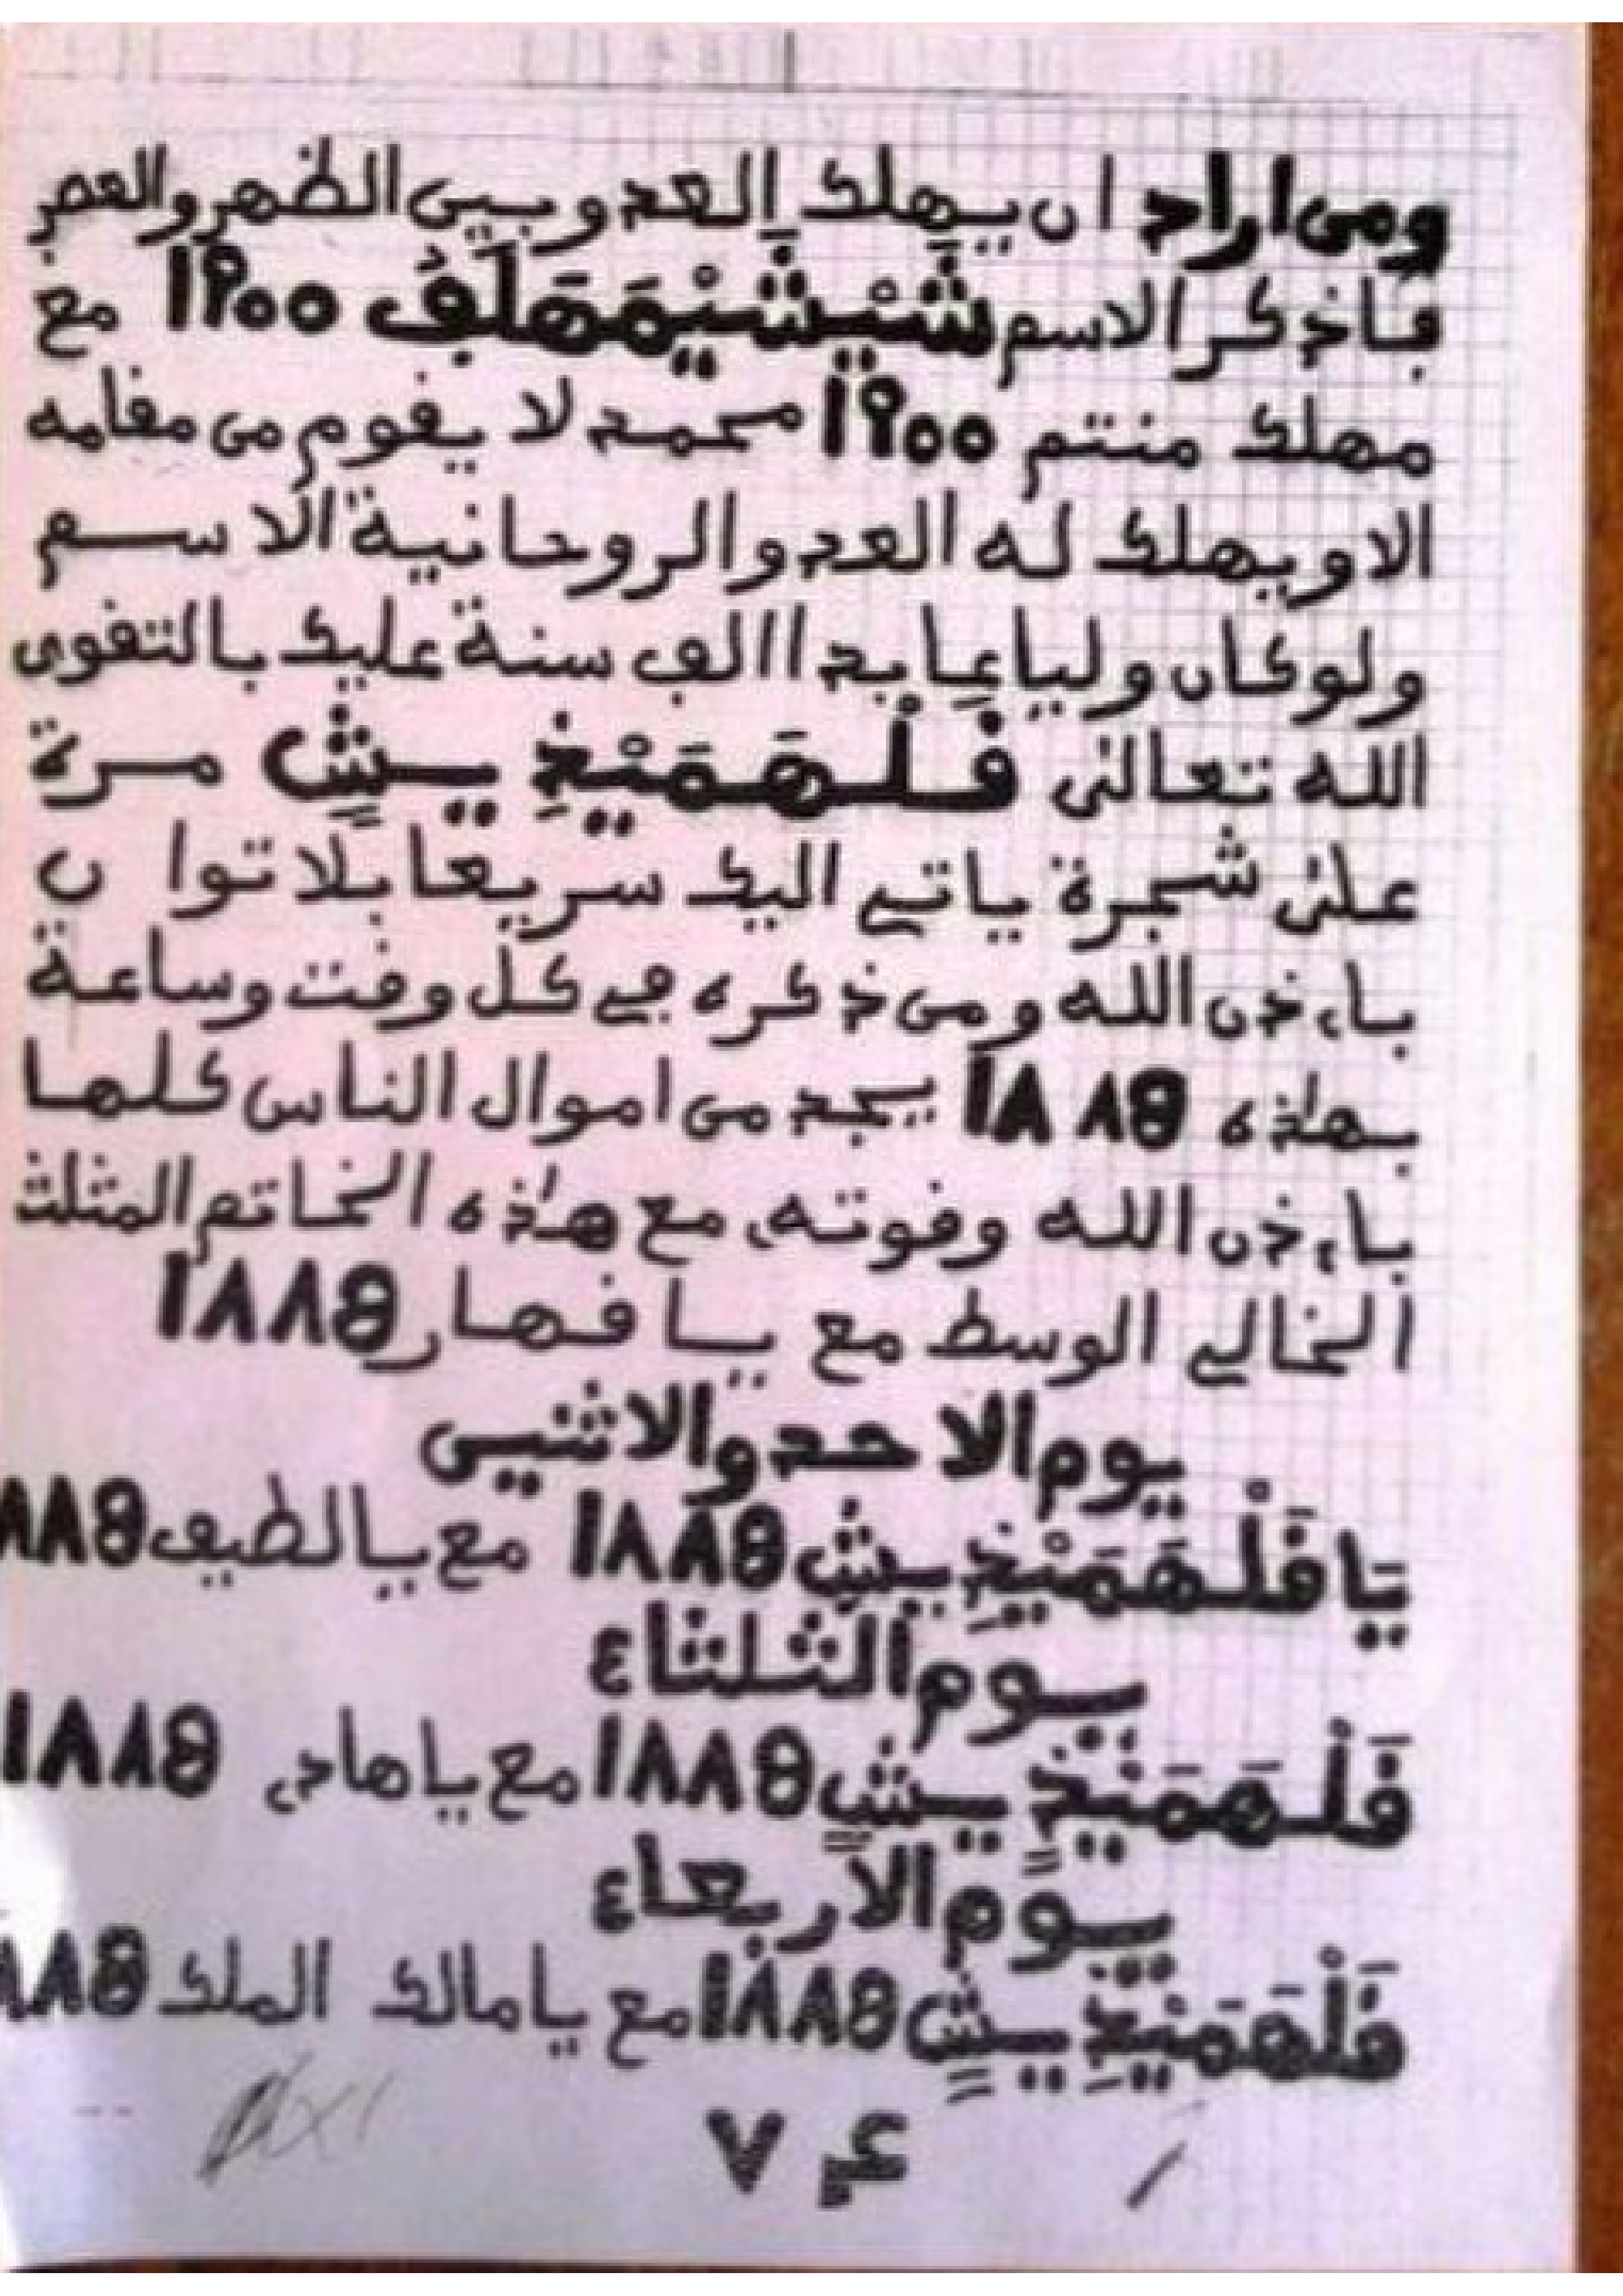 ومن اراد ان يهلك العدو بين الظهر والعصر
فاذكر الاسم شَيْشَيْمَهَلَفُ ١٩٥٥ مع
مهلك منتم ١٩٥٥ محمد لا يقوم من مقامه
الا ويهلك له العدو الروحانية الاسم
ولو كان وليا عابدا الف سنة عليك بالتقوى
الله تعالى فَلْهَمَيْخِيشٍ مرة
على شجرة ياتي اليك سريعا بلا توان
باءذن الله ومن ذكره في كل وقت وساعة
بهاذه ١٨٨٥ يجد من اموال الناس كلها
باءذن الله وقوته مع هاذه الخاتم المثلث
الخالي الوسط مع يا قهار ١٨٨٥
يوم الاحد والاثنين
يَا فَلْهَمَيْخِيشٍ ١٨٨٥ مع يا لطيف ٨٨٥
يوم الثلثاء
فَلْهَمَيْخِيشٍ ١٨٨٥ مع يا هادي ١٨٨٥
يوم الاربعاء
فَلْهَمَيْخِيشٍ ١٨٨٥ مع يا مالك الملك ٨٨٥
٧